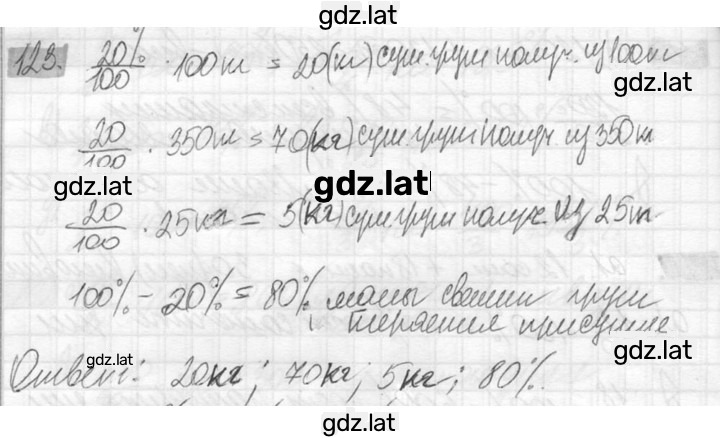 gdz.lat
123. 20%/100 · 100 = 20(кг) суш. груш получ. из 100
20/100 · 350 = 70(кг) суш. груш получ. из 350
gdz.lat
gdz.lat
20/100 · 25кг = 5(кг) суш. груш получ. из 25
100% - 20% = 80% массы свежих груш
теряется при сушке
gdz.lat
gdz.lat
Ответ: 20кг; 70кг; 5кг; 80%.
gdz.lat